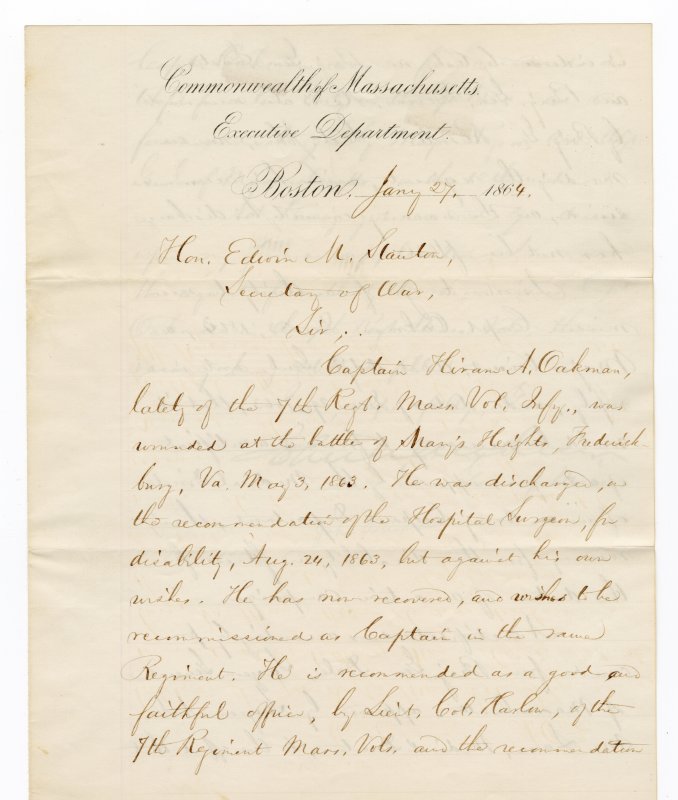 Commonwealth of Massachusetts,
Executive Department.
Boston, Jany 27, 1864.
Hon. Edwin M. Stanton,
Secretary of War,
Sir,:
Captain Hiram A. Oakman,
lately of the 7th Regt. Mass. Vol. Infy., was
wounded at the battle of Mary's Heights, Frederick-
burg, Va. May 3, 1863. He was discharged, on
the recommendation of the Hospital Surgeon, for
disability, Aug. 24, 1863, but against his own
wishes. He has now recovered, and wishes to be
recommissioned as Captain in the same
Regiment. He is recommended as a good and
faithful officer, by Lieut. Col. Harlow, of the
7th Regiment Mass. Vols. and the recommendation